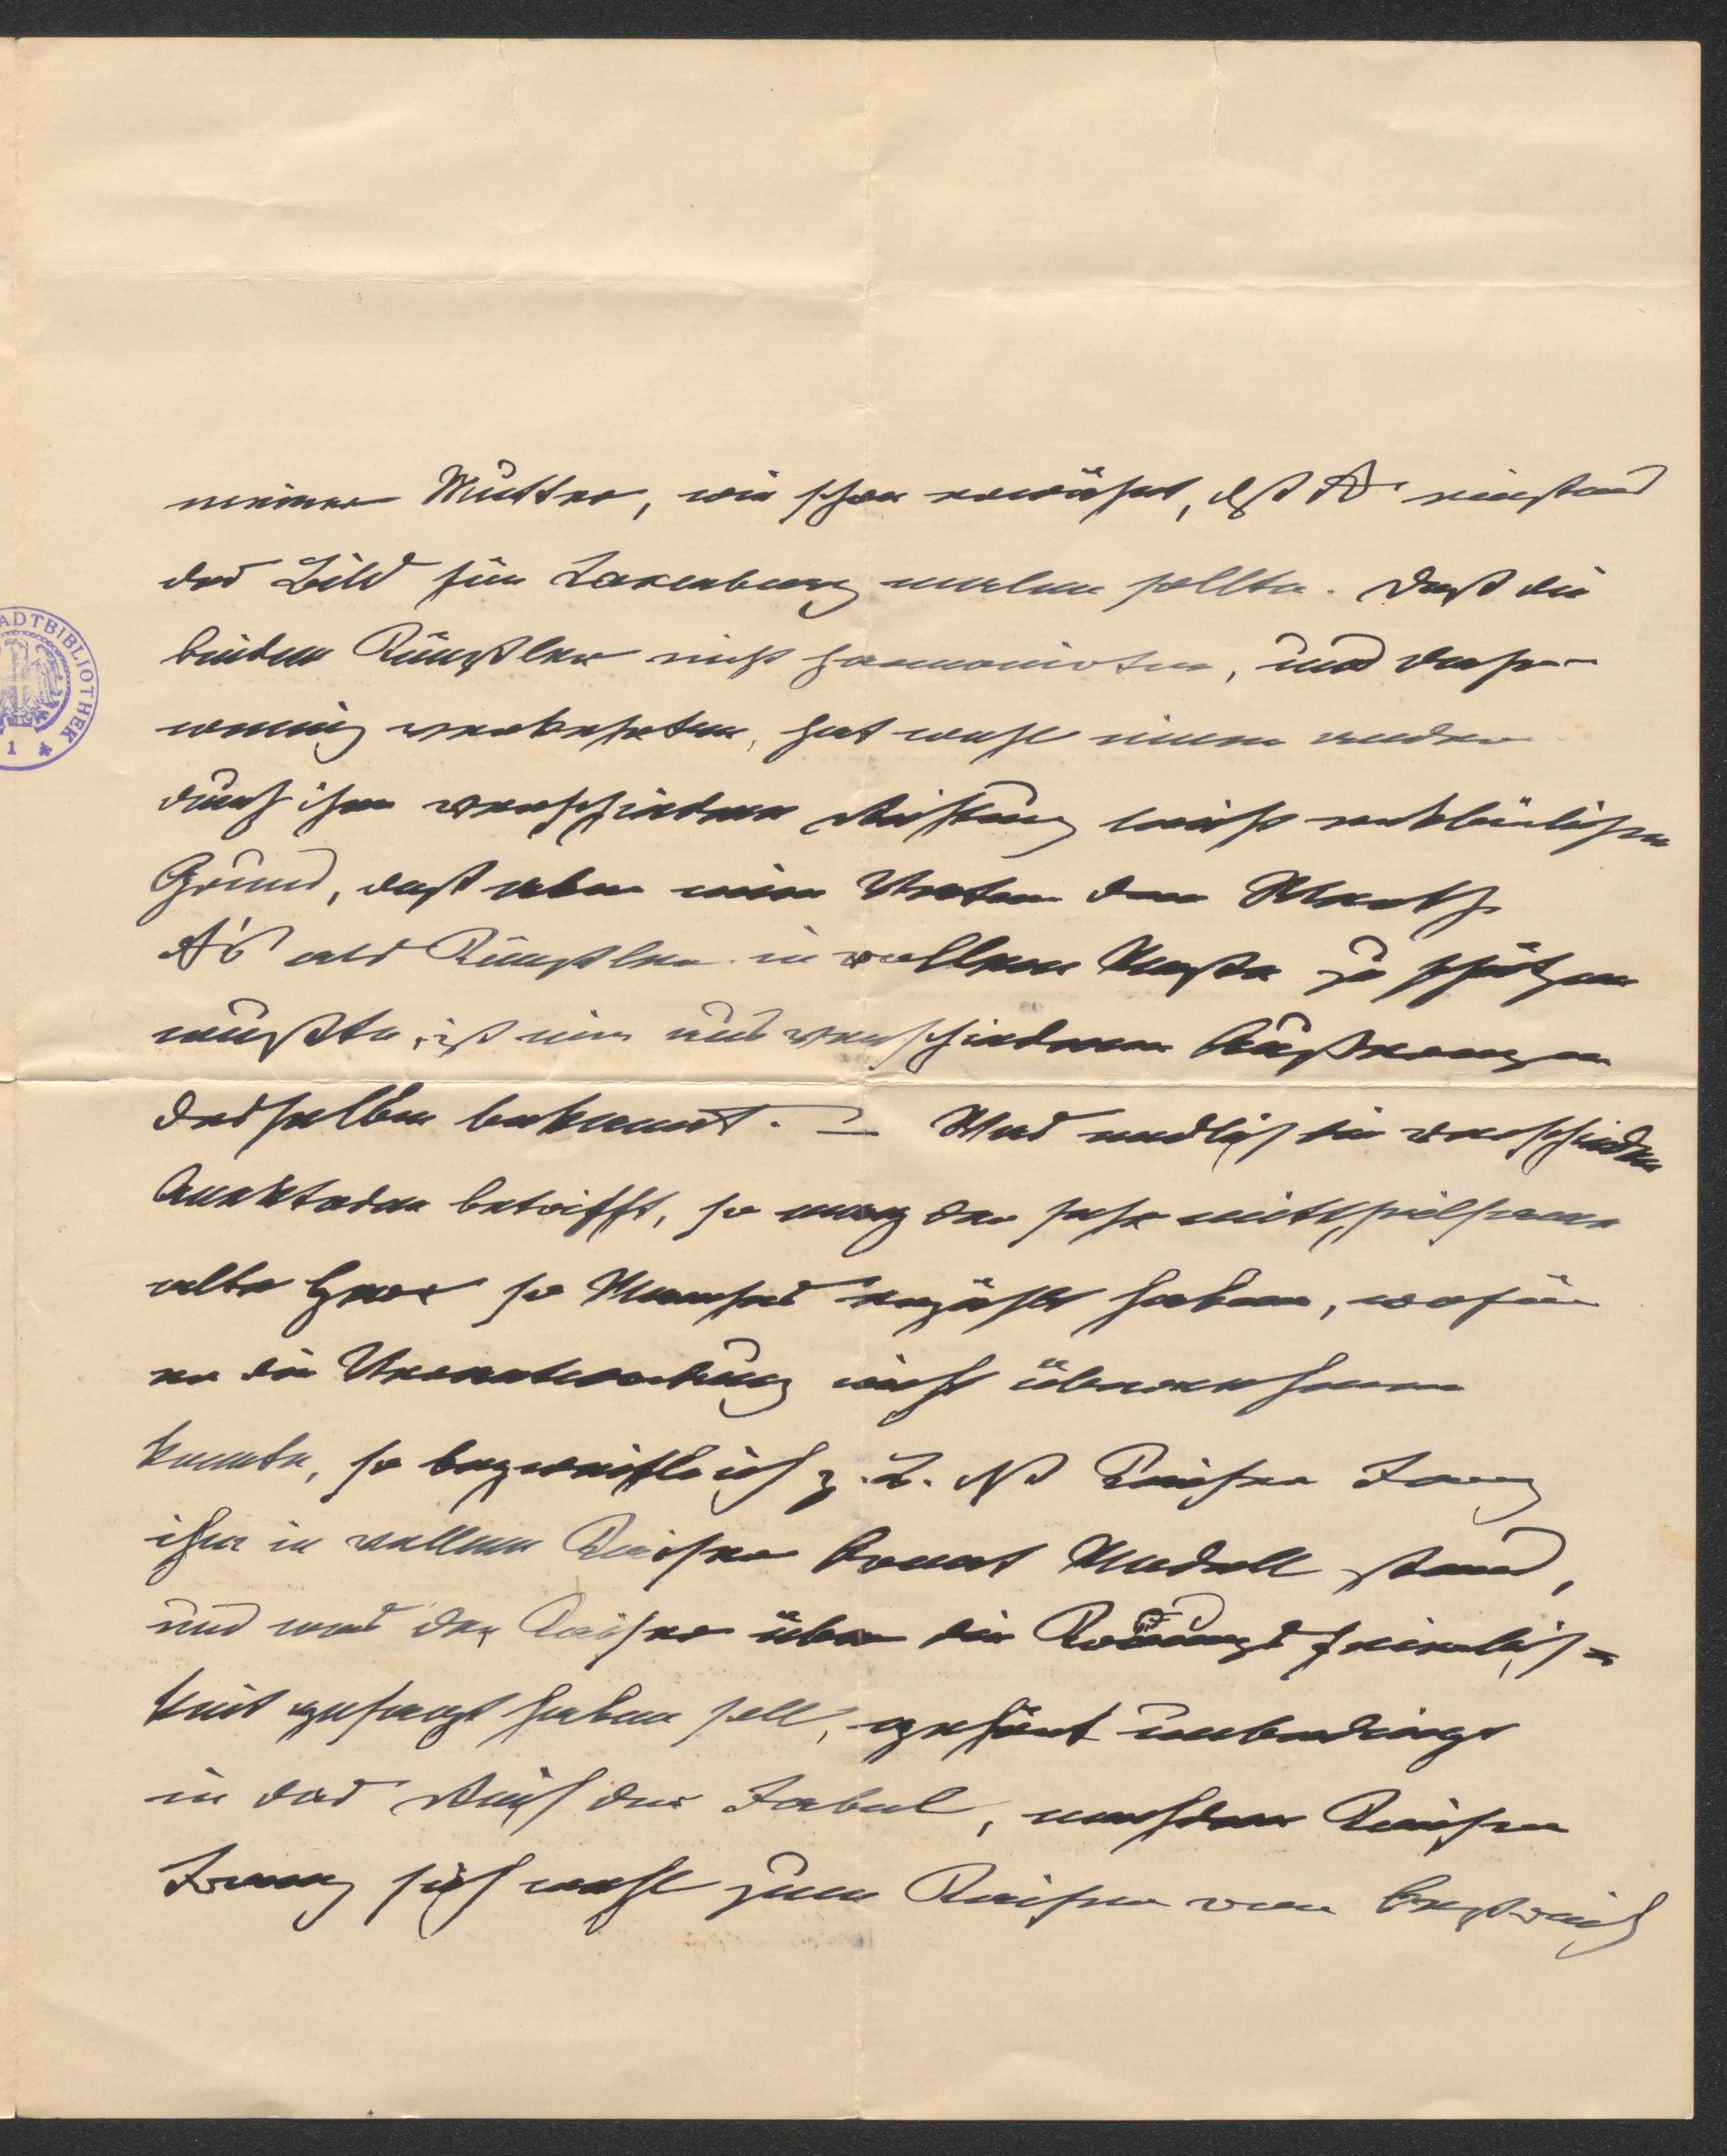 meiner Mutter, wie schon erwähnt, dß A. einstens
das Bild für Laxenburg malen sollte. Daß die
beiden Künstler nicht harmonirten, und daher
wenig verkehrten, hat wohl seinen andern
durch ihre verschiedene Richtung leicht erklärlichen
Grund, daß aber mein Vater den Werth
A's als Künstler in vollem Maße zu schätzen
wußte, ist mir aus verschiedenen Äußerungen
desselben bekannt. — Was endlich die verschieden
Anektoden betrifft, so mag der sehr mittheilsame
alte Herr so Manches erzählt haben, wofür
er die Verantwortung nicht übernehmen
konnte, so bezweifle ich z. B. dß Kaiser Franz
ihm in vollem Kaiser Ornat Modell stand,
und was der Kaiser über die Krönungs feierlich=
keit gesagt haben soll, gehört unbedingt
in das Reich der Fabel, nachdem Kaiser
Franz sich wohl zum Kaiser von Östreich